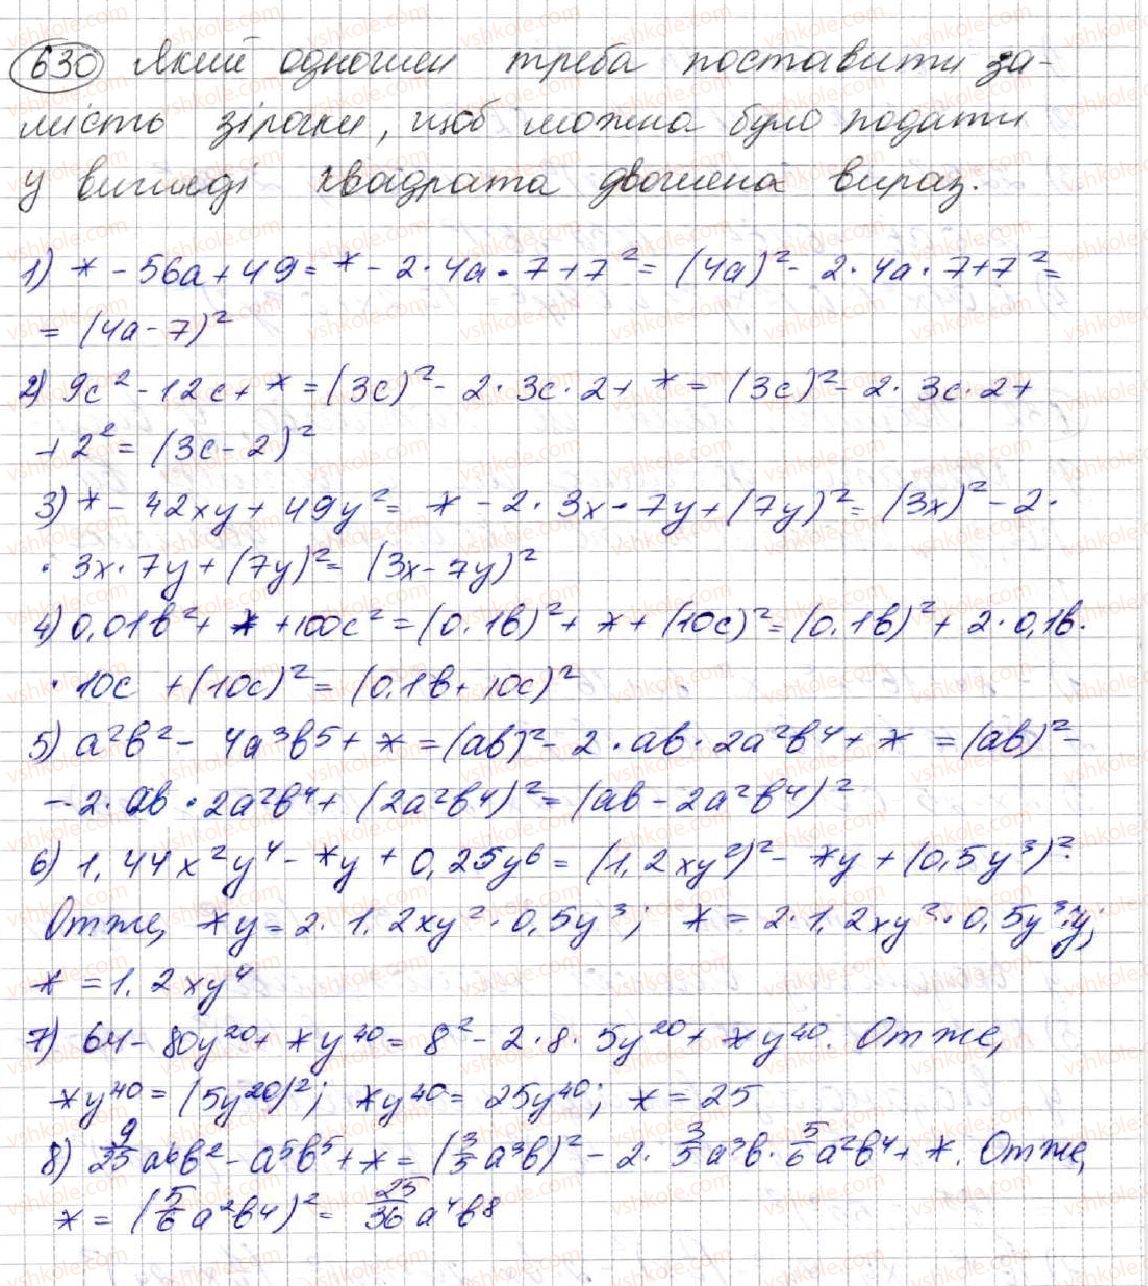 630 Який одночлен треба поставити за-
мість зірочки, щоб можна було подати
у вигляді квадрата двочлена вираз.
1) * - 56a + 49 = * - 2 · 4a · 7 + 7² = (4a)² - 2 · 4a · 7 + 7² =
= (4a - 7)²
2) 9c² - 12c + * = (3c)² - 2 · 3c · 2 + * = (3c)² - 2 · 3c · 2 +
+ 2² = (3c - 2)²
3) * - 42xy + 49y² = * - 2 · 3x · 7y + (7y)² = (3x)² - 2 ·
· 3x · 7y + (7y)² = (3x - 7y)²
4) 0,01b² + * + 100c² = (0,1b)² + * + (10c)² = (0,1b)² + 2 · 0,1b ·
· 10c + (10c)² = (0,1b + 10c)²
5) a²b² - 4a³b⁵ + * = (ab)² - 2 · ab · 2a²b⁴ + * = (ab)² -
- 2 · ab · 2a²b⁴ + (2a²b⁴)² = (ab - 2a²b⁴)²
6) 1,44x²y⁴ - *y + 0,25y⁶ = (1,2xy²)² - *y + (0,5y³)².
Отже, *y = 2 · 1,2xy² · 0,5y³; * = 2 · 1,2xy² · 0,5y³ : y;
* = 1,2xy⁴
7) 64 - 80y²⁰ + *y⁴⁰ = 8² - 2 · 8 · 5y²⁰ + *y⁴⁰. Отже,
*y⁴⁰ = (5y²⁰)²; *y⁴⁰ = 25y⁴⁰; * = 25
8) 9/25 a⁶b² - a⁵b⁵ + * = (3/5 a³b)² - 2 · 3/5 a³b · 5/6 a²b⁴ + *. Отже,
* = (5/6 a²b⁴)² = 25/36 a⁴b⁸